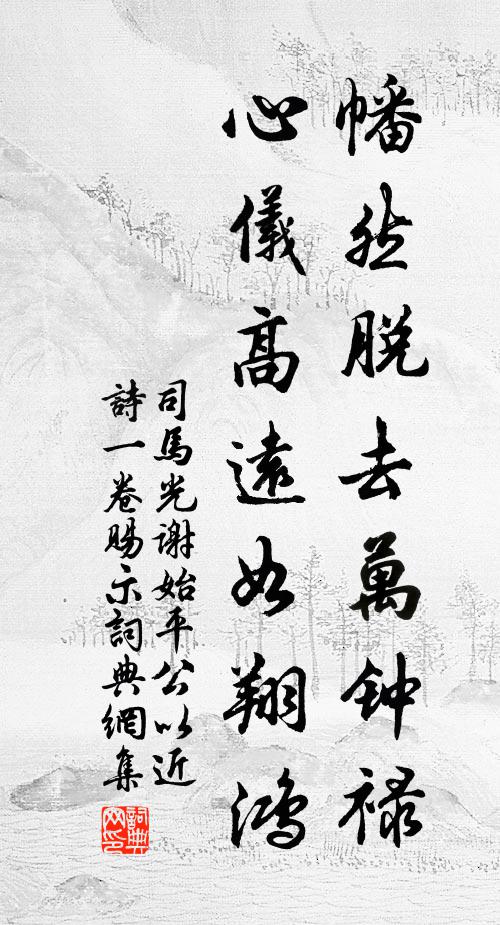 幡然脫去萬钟祿
心儀高遠如翔鴻
司馬光谢始平公以近
詩一卷賜示詞典網集
詞典网印